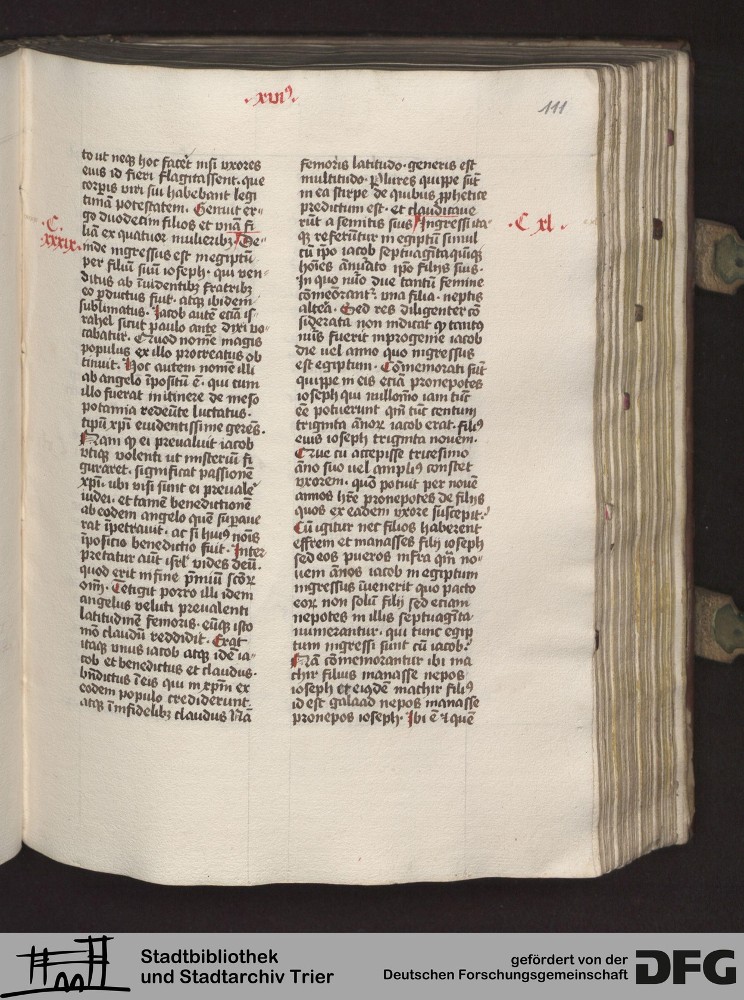 · xvıꝰ ·
111
to ut neqꝫ hoc facet̉ nisi vxores
eius id fieri flagitassent · que
corpis viri sui habebant legi
timā potestatem · Genuit er-
go duodecim filios et vnā fi
liā ex quatuor mulieribꝫ De-
· C · xxxix ·
inde ingressus est in egiptū
per filiū suū ioseph · qui ven-
ditus ab īuidentibꝫ fratribꝫ
eo ꝓductus fuit · atqꝫ ibidem
sublimatus · Jacob autē etiā is-
rahel sicut paulo ante dixi vo-
cabatur · Quod nomē magis
populus ex illo procreatus ob
tinuit · Hoc autem nomē illi
ab angelo īpositū ē · qui cum
illo fuerat in itinere de meso
potamia redeūte luctatus ·
tipū xp̄i euidentissime gerēs ·
Nam ꝙ ei preualuit iacob
vtiqꝫ volenti ut misteriū fi
guraret · significat passionē
xp̄i · ubi visi sunt ei preualē
iudei · et tamē benedictionē
ab eodem angelo quē supaue
rat īpetrauit · ac si huiꝰ nōis
īpositio benedictio fuit · Inter
pretatur aūt isrl̄ vides deū ·
quod erit in fine p̄miū scōꝝ
om̄i · Tetigit porro illi idem
angelus veluti preualenti
latitudinē femoris · eūqꝫ isto
mō claudū reddidit · Erat
itaqꝫ vnus iacob atqꝫ idē ia-
cob et benedictus et claudus ·
bn̄dictus ī eis qui in xp̄m ex
eodem populo crediderunt ·
atqꝫ ī infidelibꝫ claudus Nā
femoris latitudo · generis est
multitudo · Plures quippe sūt
in ea stirpe de quibus ꝓphetice
predictum est · et claudicaue
rūt a semitis suis Ingressi ita-
· C xl ·
qꝫ referūtur in egiptū simul
cū ip̄o iacob septuagītaquīqꝫ
hoīes ānūato ip̄o filijs suis ·
In quo nūo due tantū femine
cōmeōrant̉ · vna filia · neptis
altēa · Sed res diligenter cō
siderata non indicat ꝙ tantꝰ
nūs fuerit in progenie iacob
die uel anno quo ingressus
est egiptum · Cōmemorati sūt
quippe in eis etiā pronepotes
ioseph qui nullomō iam tūc
ēē potuerunt qm̄ tūc centum
triginta ānoꝝ iacob erat · filiꝰ
eius ioseph triginta nouem ·
Que cū accepisse tricesimo
āno suo uel ampliꝰ constet
vxorem · quō potuit per nouē
annos hr̄e pronepotes de filijs
quos ex eadem vxore suscepit ·
Cū igitur nec filios haberent
effrem et manasses filij ioseph
sed eos pueros infra qm̄ no-
uem ānos iacob in egiptum
ingressus īuenerit quo pacto
eoꝝ non solū filij sed etiam
nepotes in illis septuagīta
numerantur · qui tunc egip
tum ingressi sunt cū iacob ·
Nā cōmemorantur ibi ma
chir filius manasse nepos
ioseph et eiꝰdē machir filiꝰ
id est galaad nepos manasse
pronepos ioseph · Ibi ē ⁊ quē
Stadtbibliothek
und Stadtarchiv Trier
gefördert von der
Deutschen Forschungsgemeinschaft
DFG